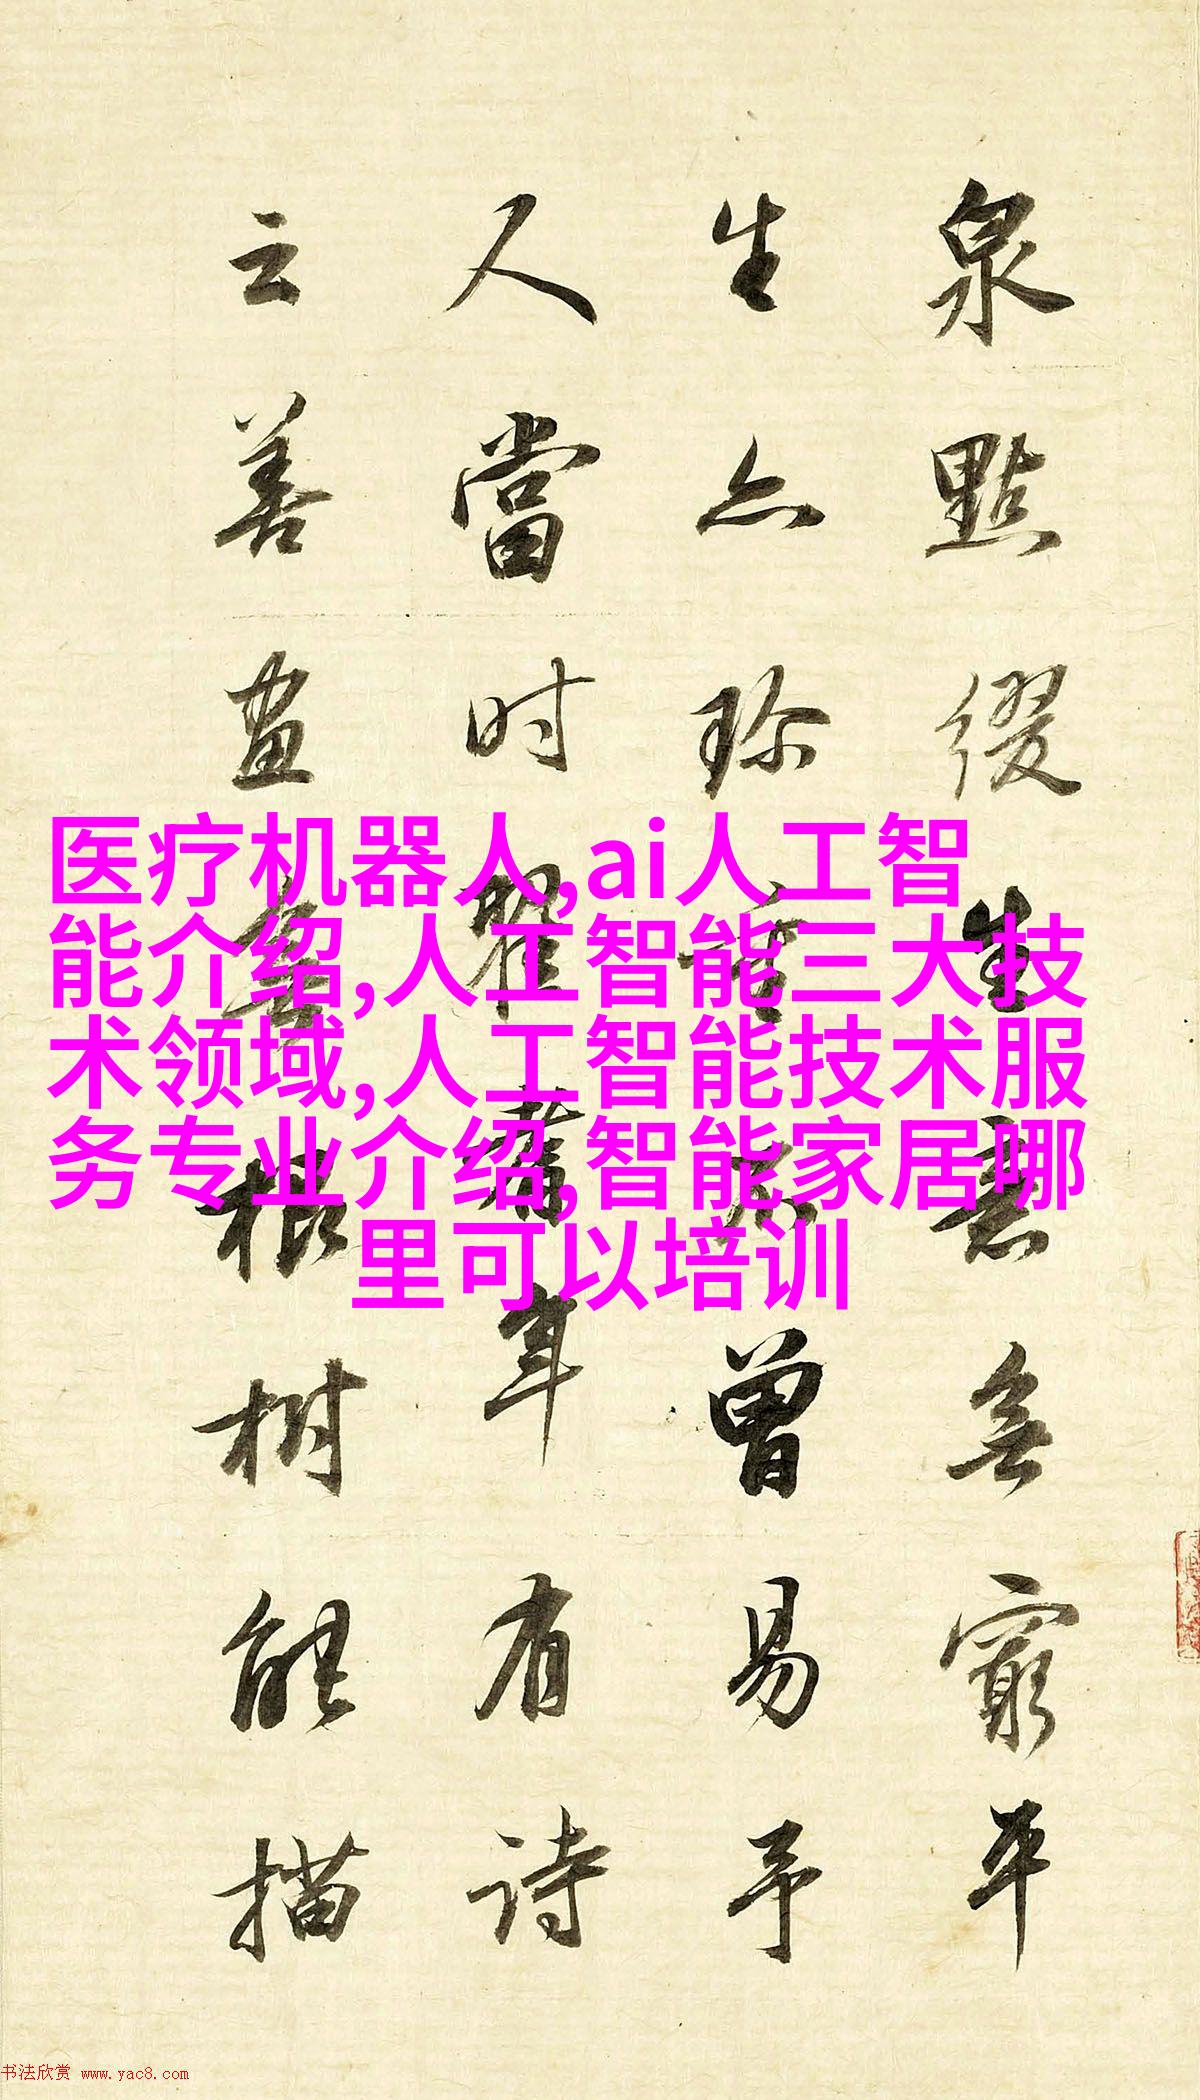 泉點綴生意無窮平
生亦珍重不曾易予
人當时翟耆年有诗
云善畫無根樹能描
医疗机器人,ai人工智
能介绍,人工智能三大技
术领域,人工智能技术服
务专业介绍,智能家居哪
里可以培训
书法欣赏 www.yac8.com